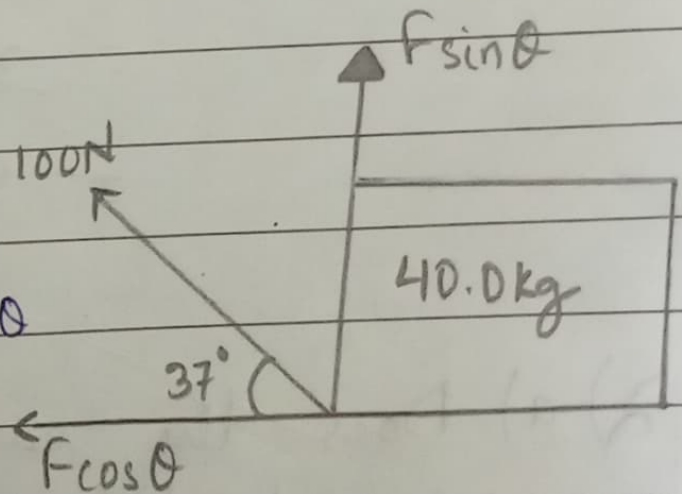 Fsinθ
100N
40.0kg
θ
37°
Fcosθ